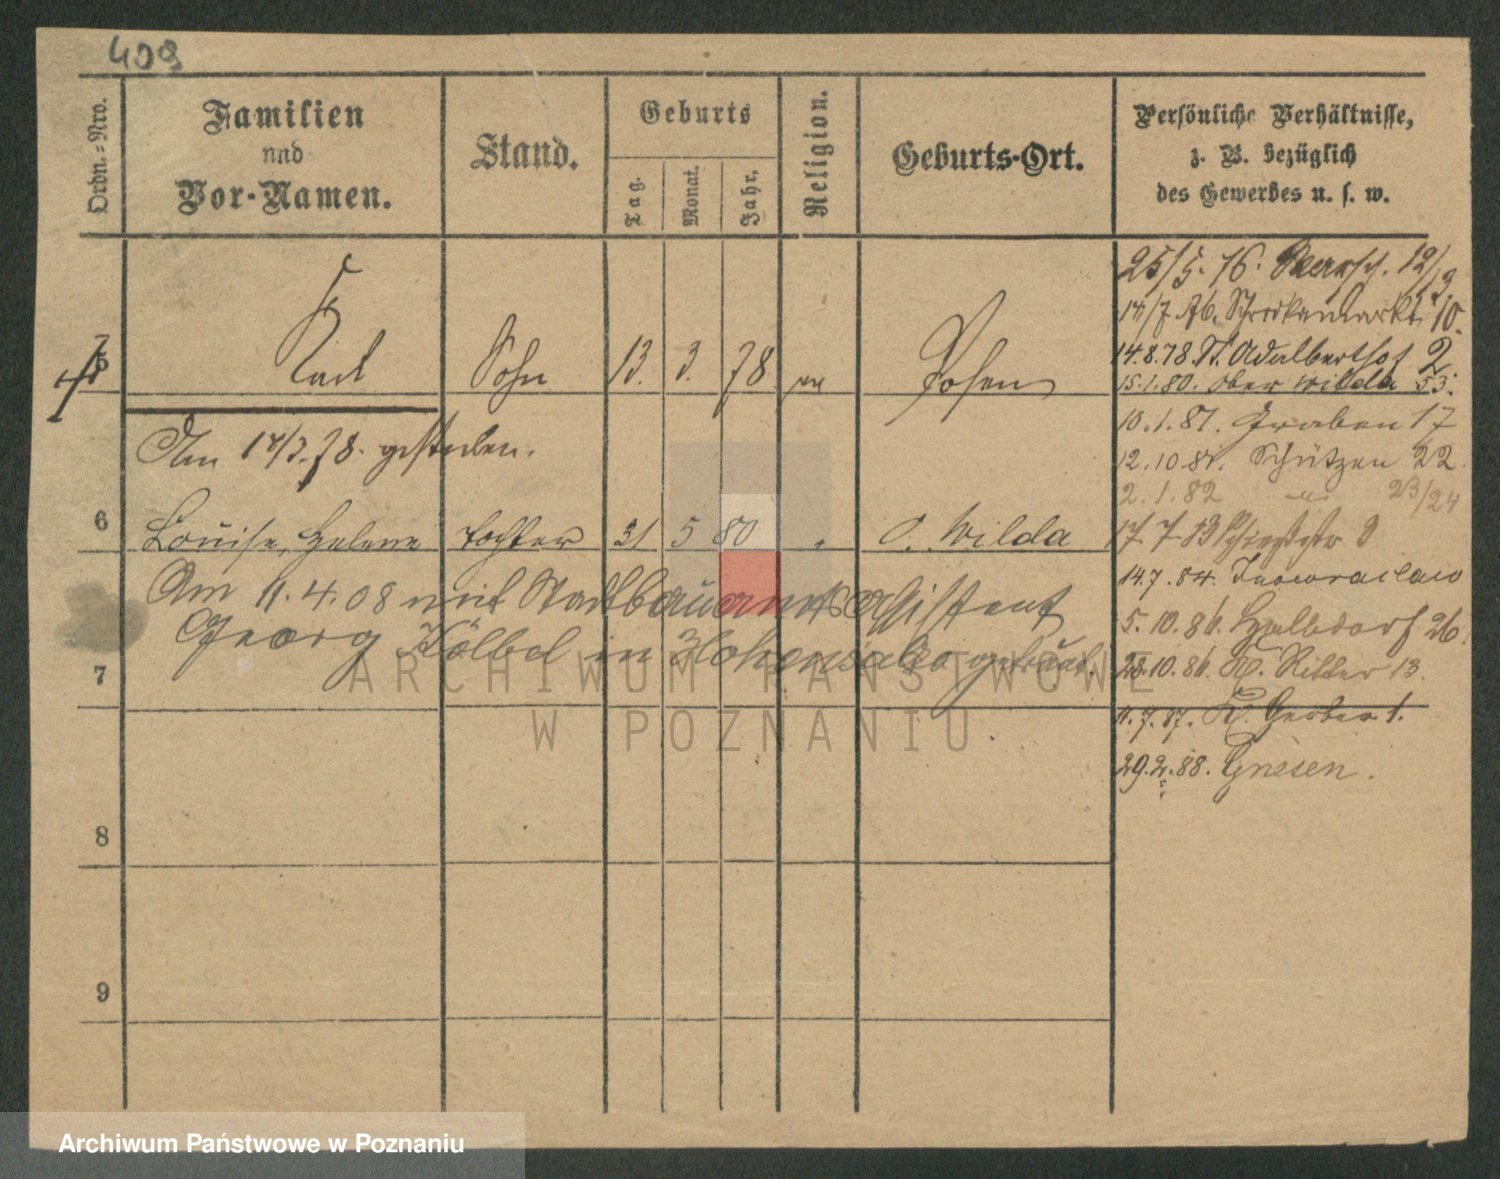 409
Ordn.-Nro.
Familien
und
Vor-Namen.
Stand.
Geburts
Tag.
Monat.
Jahr.
Religion.
Geburts-Ort.
Persönliche Verhältnisse,
z. B. bezüglich
des Gewerbes u. s. w.
5 Karl Sohn 13. 3. 78 Posen
Am 17/3.78. gestorben.
6 Louise, Helene Tochter 31 5 80 " O. Wilda
Am 11.4.08 mit Stadtbauamtsassistent
Georg Kölbel in Hohensalza getraut.
7
8
9
25/5. 76. 12/3
14/7. 76. 10.
14.8.78. St. Adalberthof 2
15.1.80. Ober Wilda 53.
10.1.81. Graben 17
12.10.81. Schützen 22
2.1.82 " 23/24
17 7 83 9
14.7.84. Inowraclaw
5.10.86. Halbdorf 26.
28.10.86. Kl. Ritter 13.
11.7.87. Kl. Gerber 1.
29.2.88. Gnesen.
ARCHIWUM PAŃSTWOWE
W POZNANIU
Archiwum Państwowe w Poznaniu